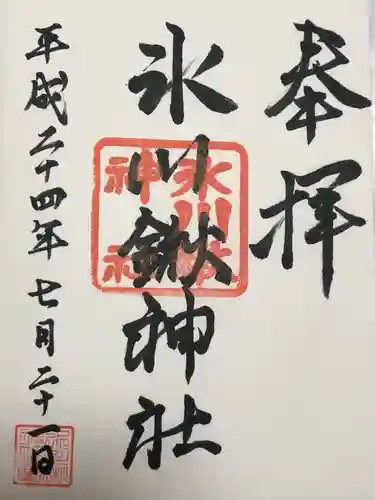 奉拝
氷川鍬神社
平成二十四年七月二十一日
氷川鍬神社